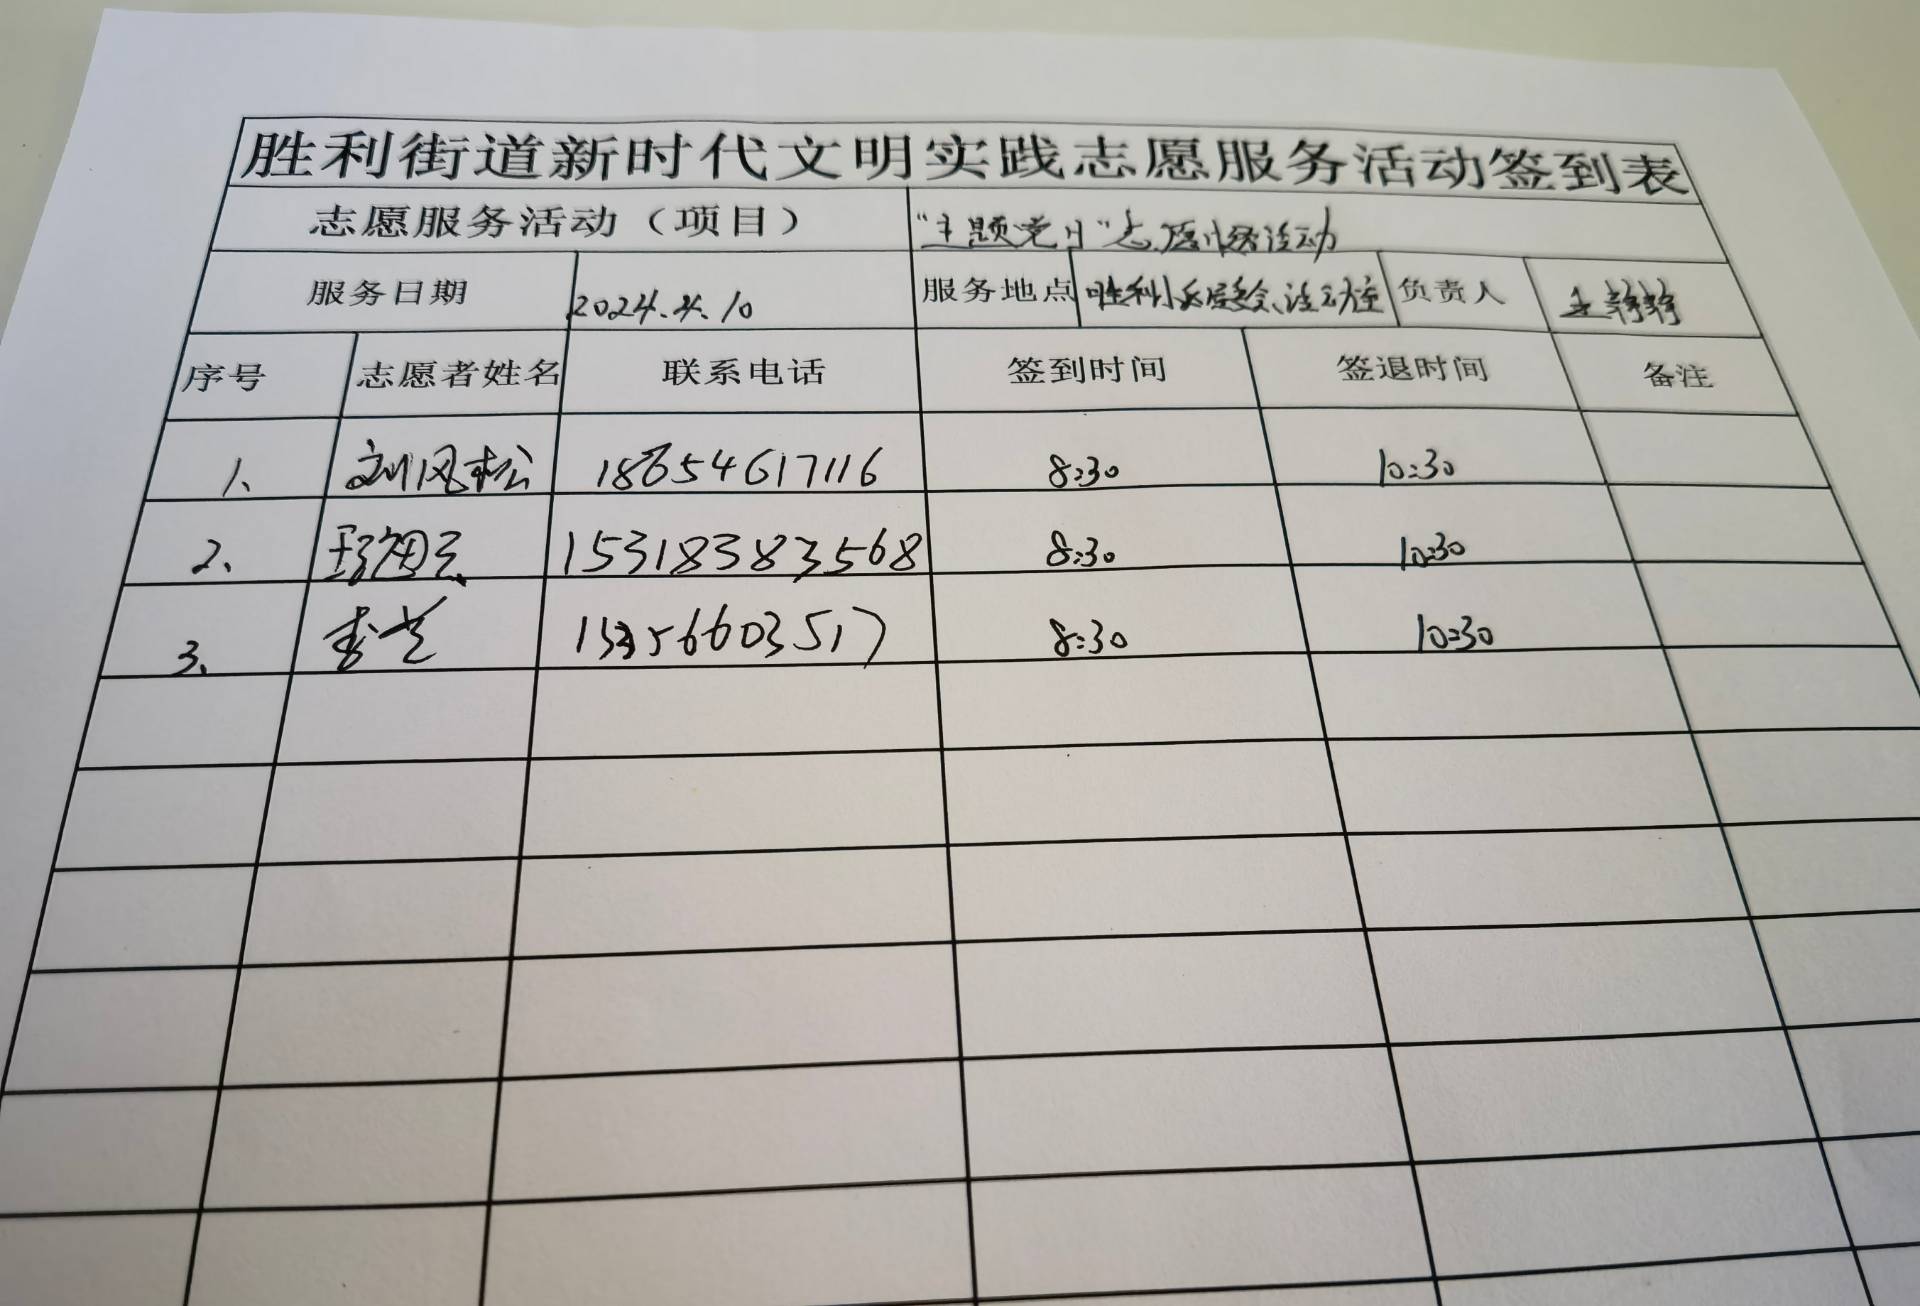 胜利街道新时代文明实践志愿服务活动签到表
志愿服务活动（项目） “主题党日”志愿服务活动
服务日期 2024.4.10 服务地点 胜利小区居委会、活动室 负责人 王静静
序号 志愿者姓名 联系电话 签到时间 签退时间 备注
1、 刘风松 18654617116 8:30 10:30
2、 15318383568 8:30 10:30
3、 8:30 10:30